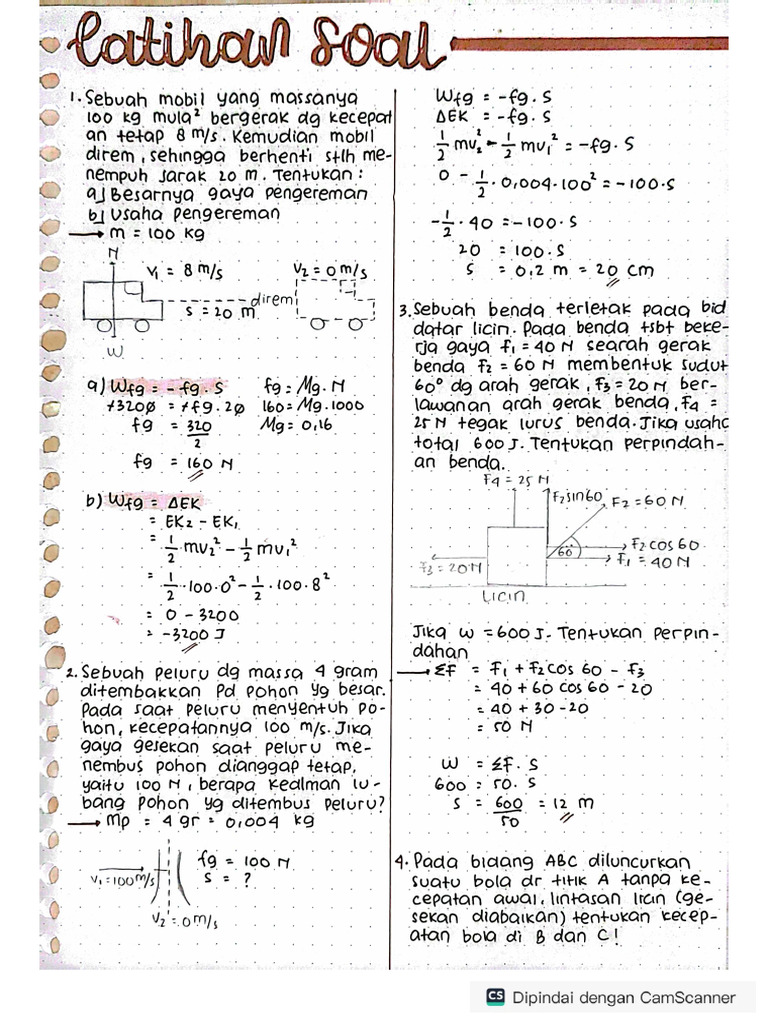 Latihan Soal
1. Sebuah mobil yang massanya
100 kg mula² bergerak dg kecepat
an tetap 8 m/s. Kemudian mobil
direm, sehingga berhenti stlh me-
nempuh jarak 20 m. Tentukan :
a) Besarnya gaya pengereman
b) Usaha pengereman
→ m = 100 kg
N
V₁ = 8 m/s
V₂ = 0 m/s
direm
s = 20 m
W
a) Wfg = -fg . S
fg = Mg . N
+3200 = +fg . 20
160 = Mg . 1000
fg = 320/2
Mg = 0,16
fg = 160 N
b) Wfg = ΔEK
= EK₂ - EK₁
= 1/2 mv₂² - 1/2 mv₁²
= 1/2 · 100 · 0² - 1/2 · 100 · 8²
= 0 - 3200
= -3200 J
2. Sebuah peluru dg massa 4 gram
ditembakkan Pd pohon yg besar.
Pada saat peluru menyentuh po-
hon, kecepatannya 100 m/s. Jika
gaya gesekan saat peluru me-
nembus pohon dianggap tetap,
yaitu 100 N, berapa kedlman lu-
bang pohon yg ditembus peluru?
→ Mp = 4 gr = 0,004 kg
fg = 100 N
V₁ = 100 m/s
S = ?
V₂ = 0 m/s
Wfg = -fg . S
ΔEK = -fg . S
1/2 mv₂² - 1/2 mv₁² = -fg . S
0 - 1/2 · 0,004 · 100² = -100 · S
-1/2 · 40 = -100 · S
20 = 100 . S
S = 0,2 m = 20 cm
3. Sebuah benda terletak pada bid
datar licin. Pada benda tsbt beke-
rja gaya f₁ = 40 N searah gerak
benda f₂ = 60 N membentuk sudut
60° dg arah gerak, f₃ = 20 N ber-
lawanan arah gerak benda, f₄ =
25 N tegak lurus benda. Jika usaha
total 600 J. Tentukan perpindah-
an benda.
F₄ = 25 N
F₂ sin 60
F₂ = 60 N
60°
F₂ cos 60
F₁ = 40 N
F₃ = 20 N
Licin
Jika W = 600 J. Tentukan perpin-
dahan
→ Σf = F₁ + F₂ cos 60 - F₃
= 40 + 60 cos 60 - 20
= 40 + 30 - 20
= 50 N
W = Σf . S
600 = 50 . S
S = 600/50 = 12 m
4. Pada bidang ABC diluncurkan
suatu bola dr titik A tanpa ke-
cepatan awal, lintasan licin (ge-
sekan diabaikan) tentukan kecep-
atan bola di B dan C!
CS Dipindai dengan CamScanner